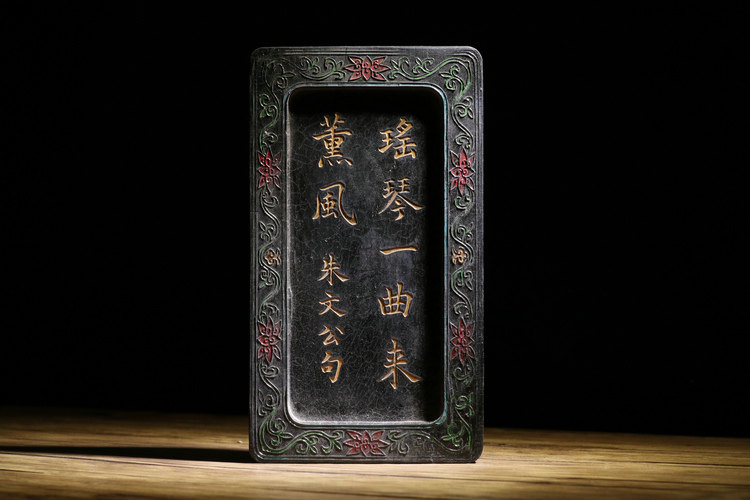 瑤琴一曲来
薰風
朱文公句